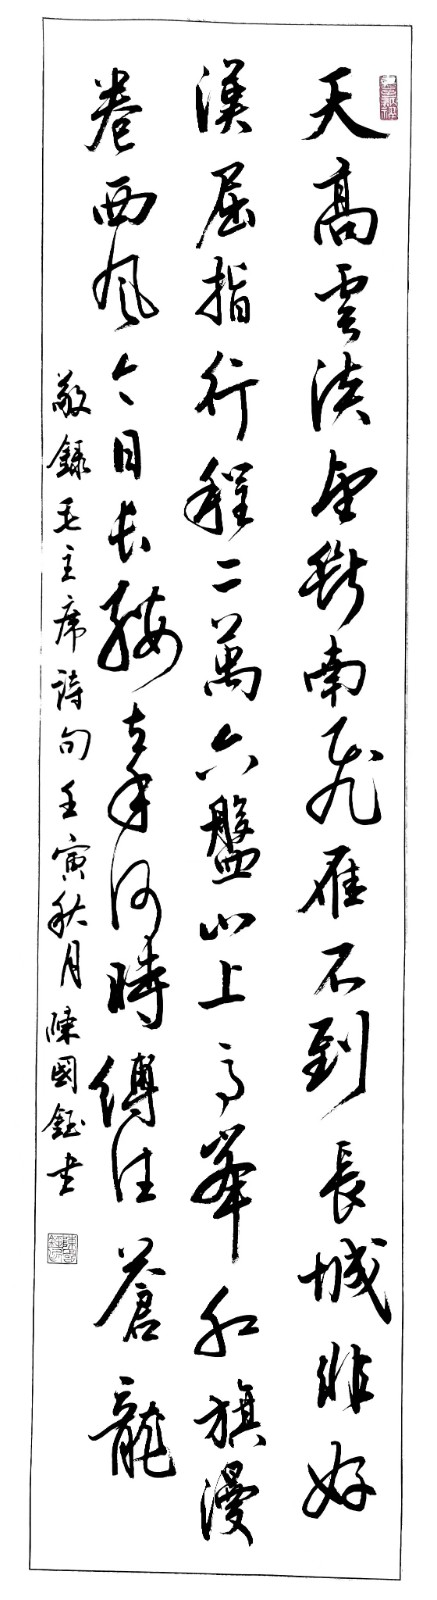 天高雲淡望斷南飛雁不到長城非好
漢屈指行程二萬六盤山上高峯紅旗漫
卷西風今日長纓在手何時縛住蒼龍
敬錄毛主席詩句壬寅秋月陳國鈺書